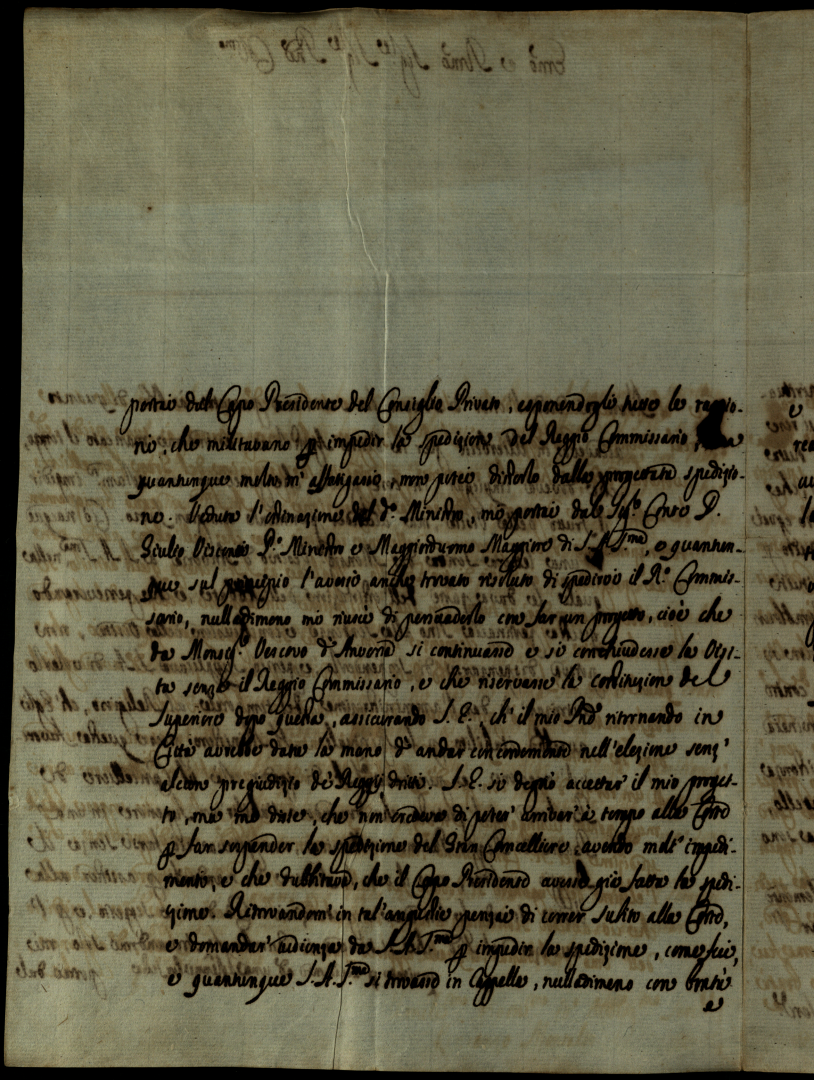 portai dal Capo Presidente del Consiglio Privato, esponendogli tutte le raggio-
ni, che militavano p impedir la spedizione del Reggio Commissario,
quantunque molto m'affatigassi, non potei distorlo dalla progettata spedizio-
ne. Veduta l'ostinazione del d.º Ministro, mi portai dal Sig.r Conte D.
Giulio Visconti P.º Ministro e Maggiorduomo Maggiore di S.A.S.ma, e quantun-
que sul principio l'avessi anche trovato risoluto di spedirvi il R.º Commis-
sario, nulladimeno mi riuscì di persuaderlo con far un progetto, cioè che
da Monsig.r Vescovo d'Anversa si continuasse e si conchiudesse la Visi-
ta senza il Reggio Commissario, e che riservasse la constituzione del
Superiore dopo questa, assicurando S.E., ch'il mio Pnd ritornando in
Città avrebbe data la mano d'andar con nell'elezione senz'
alcun pregiudizio de Reggij dritti. S.E. si degnò accettar il mio proget-
to, ma mi disse, che non credeva di poter arrivar à tempo alla Corte
p far sospender la spedizione del Gran Cancelliere, avendo molt' impedi-
menti, e che dubbitava, che il Capo Presidente avesse già fatta la spedi-
zione. Ritrovandomi in tal'angustie pensai di correr subito alla Corte,
e domandar udienza da S.A.S.ma p impedir la spedizione, come feci,
e quantunque S.A.S.ma si trovasse in Cappella, nulladimeno con
e